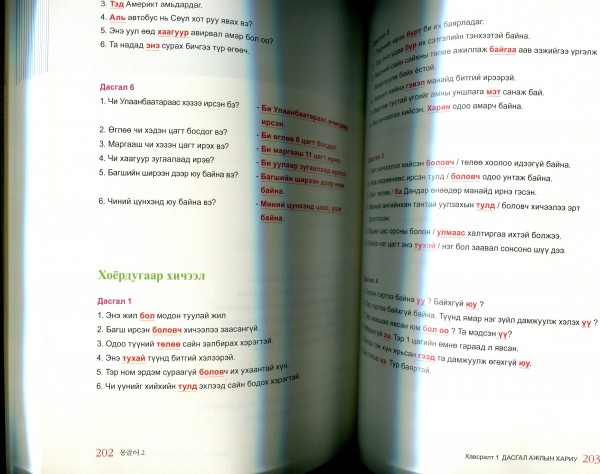 3. Тэд Америкт амьдардаг.
4. Аль автобус нь Сөүл хот руу явах вэ?
5. Энэ уул өөд хаагуур авирвал амар бол оо?
6. Та надад энэ сурах бичгээ түр өгөөч.
Дасгал 6
1. Чи Улаанбаатараас хэзээ ирсэн бэ?
- Би Улаанбаатараас өчигдөр
ирсэн.
2. Өглөө чи хэдэн цагт босдог вэ?
- Би өглөө 6 цагт босдог
3. Маргааш чи хэзээн цагт ирэх вэ?
- Би маргааш 11 цагт ирнэ
4. Чи хаагуур зугаалаад ирэв?
- Би уулаар зугаалаад ирлээ
5. Багшийн ширээн дээр юу байна вэ?
- Багшийн ширээн дээр ном
байна.
6. Чиний цүнхэнд юу байна вэ?
- Миний цүнхэнд цаас,
байна.
Хоёрдугаар хичээл
Дасгал 1
1. Энэ жил бол модон туулай жил
2. Багш ирсэн боловч хичээлээ заасангүй.
3. Одоо түүний төлөө сайн залбирах хэрэгтэй.
4. Энэ тухай түүнд битгий хэлээрэй.
5. Тэр ном эрдэм сураагүй боловч их ухаантай хүн.
6. Чи үүнийг хийхийн тулд эхлээд сайн бодох хэрэгтэй.
202 몽골어 2
ирэх бүрт би их баярладаг.
бүр их сэтгэлийн тэнхээтэй байна.
сайн сайхны төлөө ажиллаж байгаа аав ээжийгээ үргэлж
байх ёстой.
хийнэ гэвэл манайд битгий ирээрэй.
тустай үгсийг амны уншлага мэт санаж бай.
хичээлээ хийсэн. Харин одоо амарч байна.
3
хичээлээ хийсэн боловч / төлөө хоолоо идээгүй байна.
ирсэн тулд / боловч одоо унтаж байна.
төлөө / ба Дандар өнөөдөр манайд ирнэ гэсэн.
ангийнхан тантай уулзахын тулд / боловч хичээлээ эрт
цас ороны болон / улмаас халтиргаа ихтэй болжээ.
цагт энэ тухай / нэг бол заавал сонсоно шүү дээ.
4
гэртээ байна уу ? Байхгүй юу ?
гэртээ байхгүй байна. Түүнд ямар нэг зүйл дамжуулж хэлэх үү ?
хаашаа явсан юм бол оо ? Та мэдсэн үү?
ээ. Тэр 1 цагийн өмнө гараад л явсан.
хүн ярьсан гээд та дамжуулж өгөхгүй юу.
ээ. Түр баяртай.
Хавсралт 1 ДАСГАЛ АЖЛЫН ХАРИУ 203